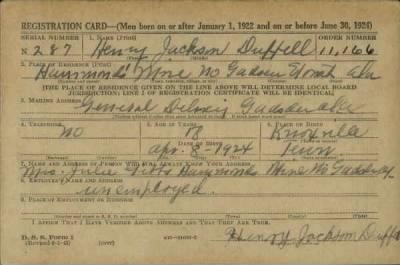 REGISTRATION CARD—(Men born on or after January 1, 1922 and on or before June 30, 1924)
SERIAL NUMBER 1. NAME (Print) ORDER NUMBER
N 287 Henry Jackson Duffell 11,166
2. PLACE OF RESIDENCE (Print)
Hammonds Mine No Gadsden Etowah ala
(THE PLACE OF RESIDENCE GIVEN ON THE LINE ABOVE WILL DETERMINE LOCAL BOARD
JURISDICTION; LINE 2 OF REGISTRATION CERTIFICATE WILL BE IDENTICAL)
3. MAILING ADDRESS
General Gadsden ala
4. TELEPHONE 5. AGE IN YEARS 6. PLACE OF BIRTH
no 18 Knoxville
DATE OF BIRTH
apr. 8-1924 Tenn
7. NAME AND ADDRESS OF PERSON WHO WILL ALWAYS KNOW YOUR ADDRESS
Mrs. Julie Gibbs Hammonds Mine No Gadsden
8. EMPLOYER'S NAME AND ADDRESS
unemployed.
9. PLACE OF EMPLOYMENT OR BUSINESS
I AFFIRM THAT I HAVE VERIFIED ABOVE ANSWERS AND THAT THEY ARE TRUE.
D. S. S. Form 1 (over)
Henry Jackson Duffell